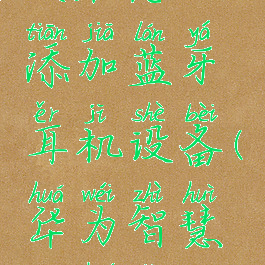 tiān jiā lán yá
添加蓝牙
ěr jī shè bèi
耳机设备(
huá wéi zhì huì
华为智慧